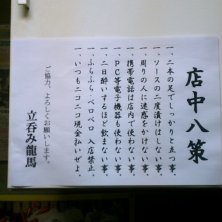 店中八策
一、二本の足でしっかりと立つ事。
一、ソースの二度漬けはしない事。
一、周りの人に迷惑をかけない事。
一、携帯電話は店内で使わない事。
一、PC等電子機器も使わない事。
一、二日酔いするほど飲まない事。
一、ふらふら、ベロベロ 入店禁止。
一、いつもニコニコ現金払いぜよ。
ご協力、よろしくお願いします。
立呑み龍馬